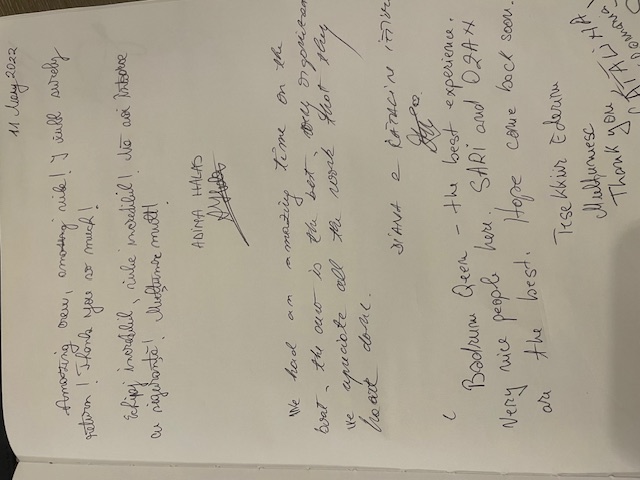 11 May 2022
Amazing crew, amazing ride! I will surely
return! Thank you so much!
Echipaj incredibil, incredibil! Mă voi întoarce
cu siguranță! Mulțumesc mult!
ADINA HALAS
We had an amazing time on the
boat, the crew is the best
We apreciate all the work that they
have done.
DIANA
Bodrum Qeen - the best experience.
Very nice people here. SARI and OZAN
are the best. Hope come back soon.
Tesekkür Ederim
Multumesc
Thank you